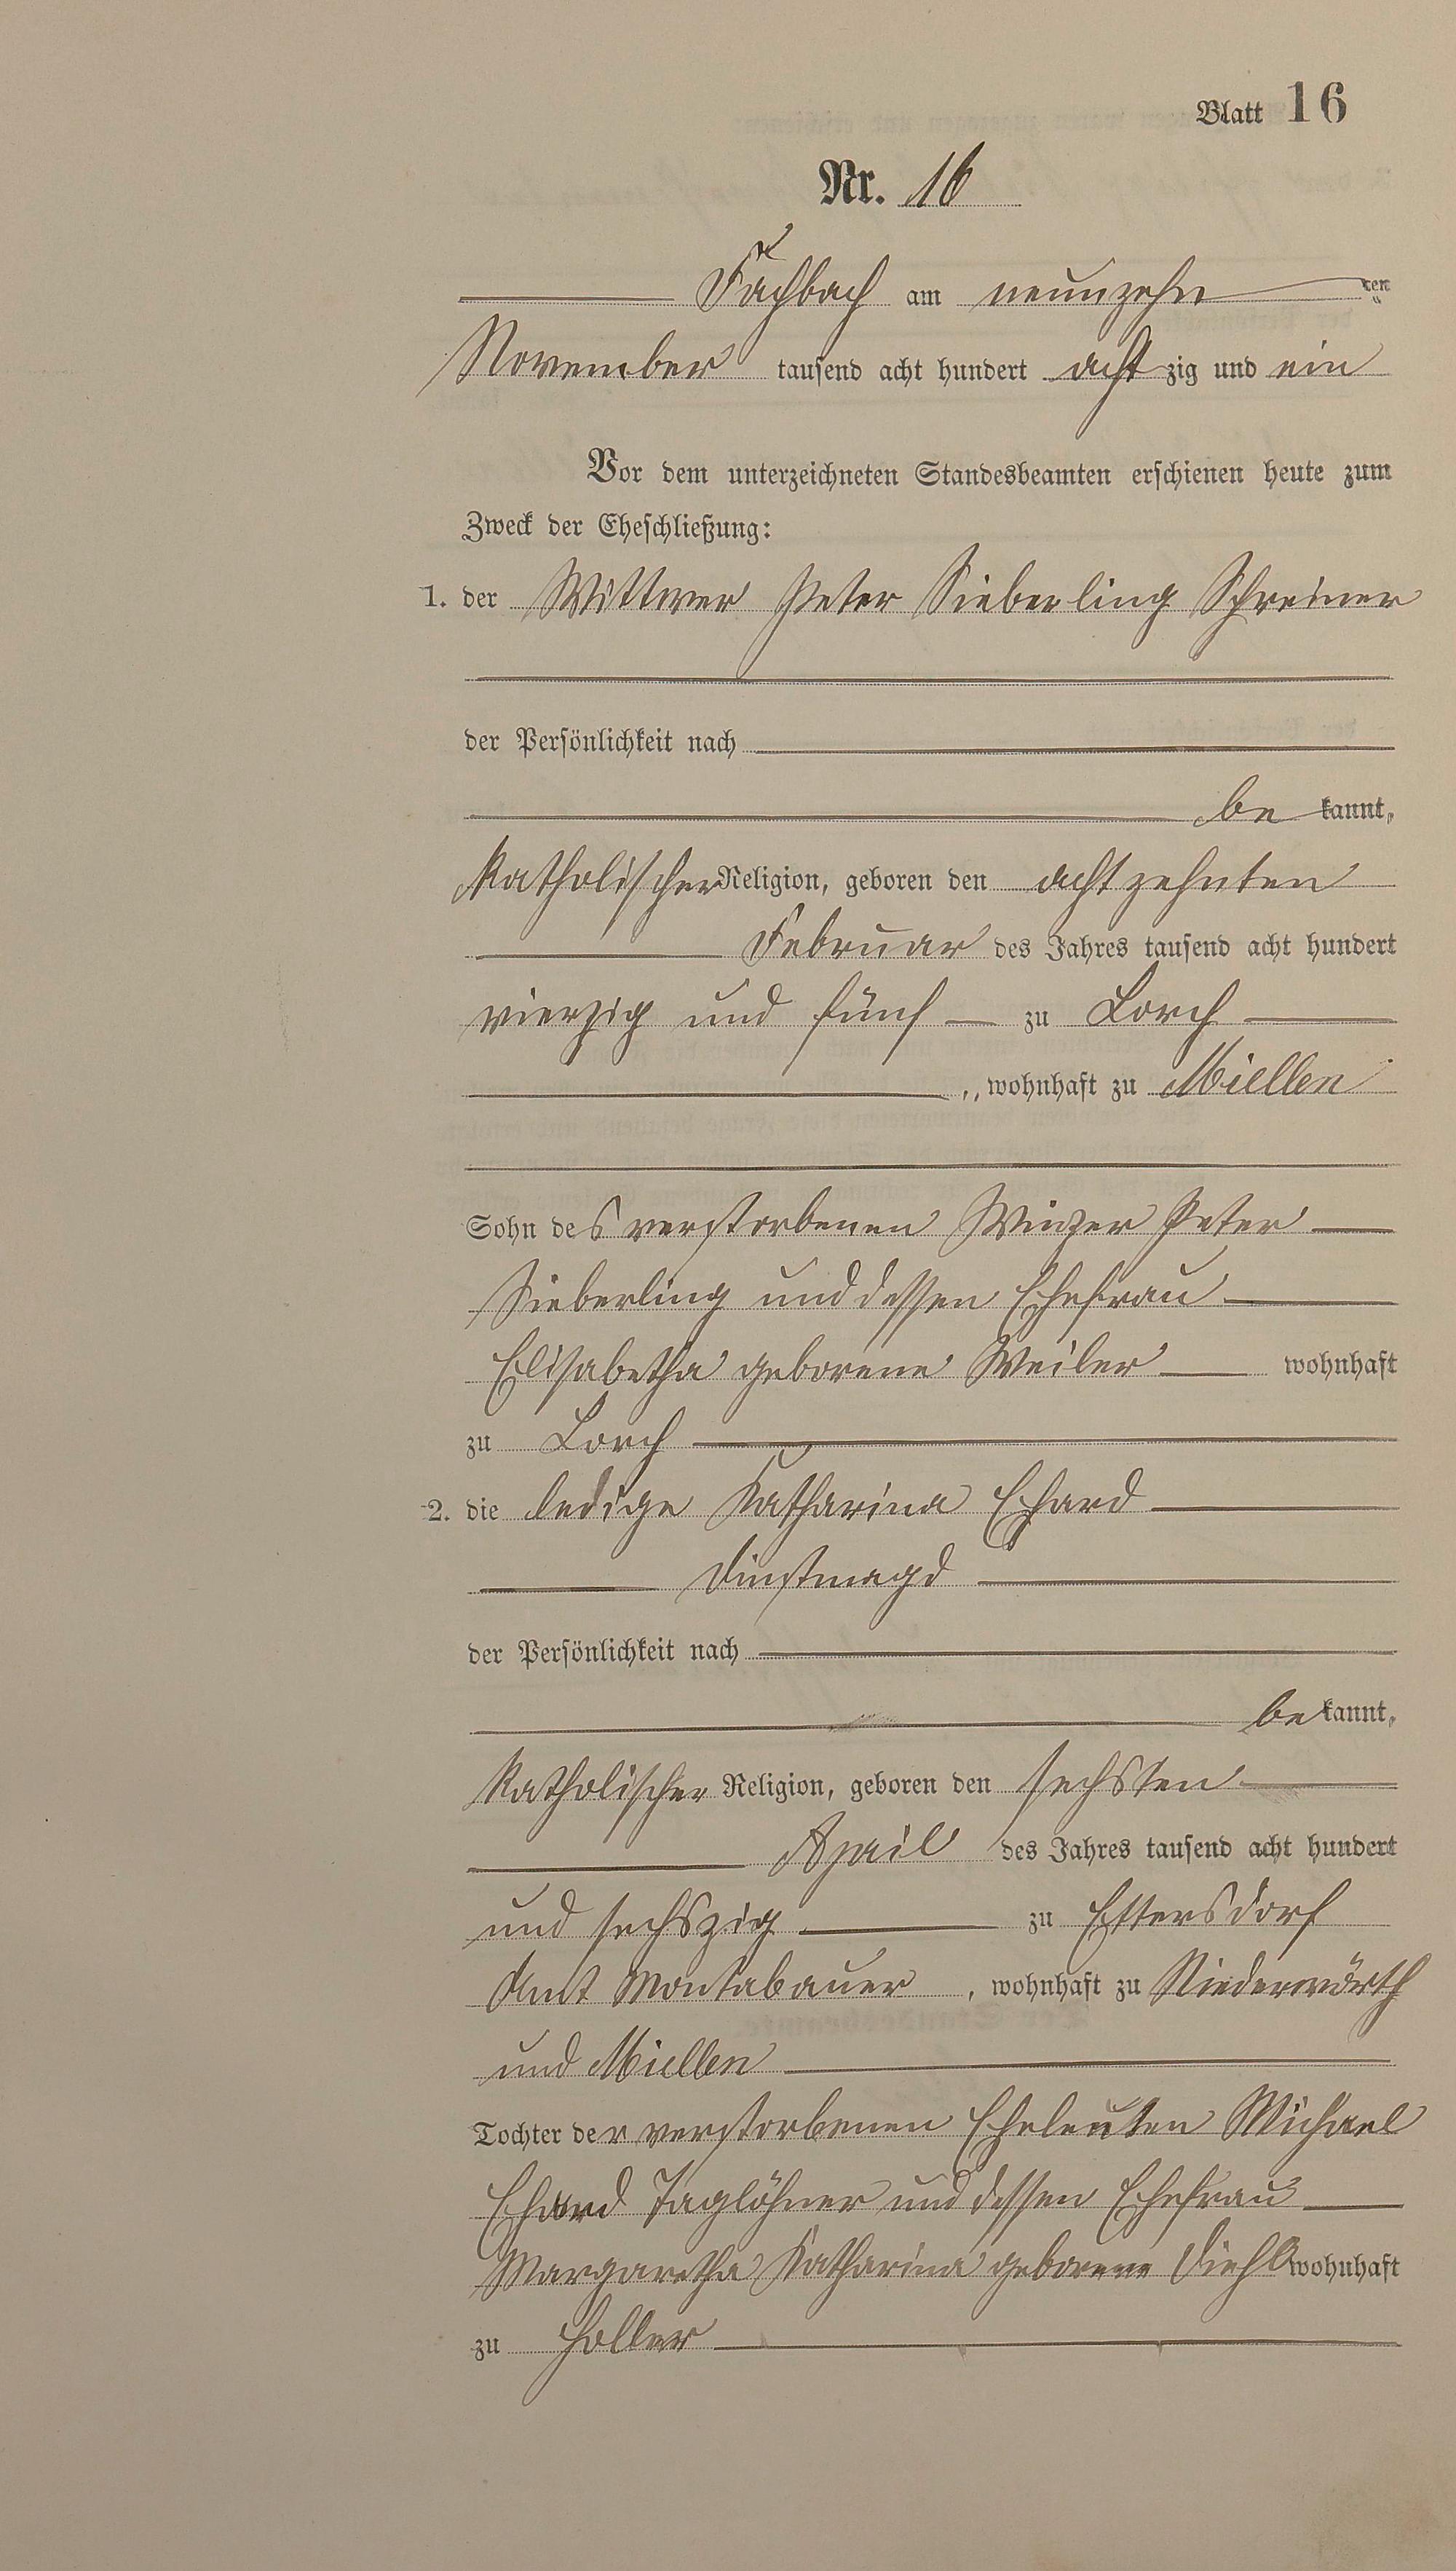 Blatt 16
Nr. 16
Fachbach am neunzehn ten
November tausend acht hundert acht zig und ein
Vor dem unterzeichneten Standesbeamten erschienen heute zum
Zweck der Eheschließung:
1. der Wittwer Peter Sieberling Schreiner
der Persönlichkeit nach
be kannt,
katholischer Religion, geboren den achtzehnten
Februar des Jahres tausend acht hundert
vierzig und fünf zu Lorch
, wohnhaft zu Miellen
Sohn des verstorbenen Winzer Peter
Sieberling und dessen Ehefrau
Elisabetha geborene Weiler wohnhaft
zu Lorch
2. die ledige Katharina Ehard
Dinstmagd
der Persönlichkeit nach
be kannt,
katholischer Religion, geboren den sechsten
April des Jahres tausend acht hundert
und sechszig zu Ettersdorf
Amt Montabauer, wohnhaft zu Niederwörth
und Miellen
Tochter der verstorbenen Eheleuten Michael
Ehard Taglöhner und dessen Ehefrau
Margaretha Katharina geborene Diehl wohnhaft
zu Holler